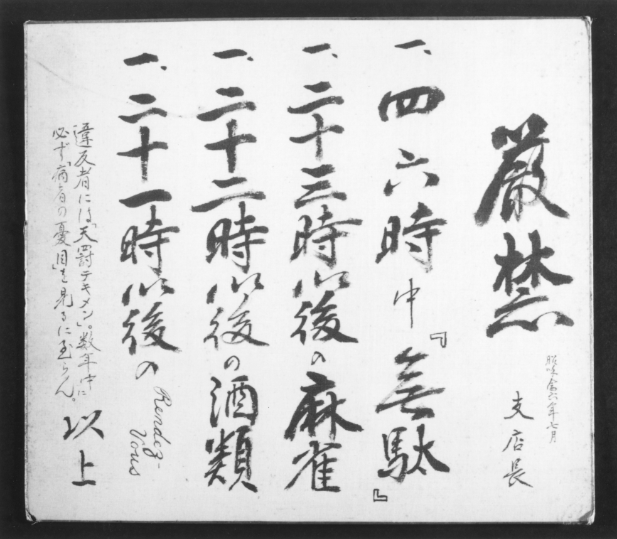 厳禁
昭和六年七月
支店長
一、四六時中『無駄』
一、二十三時以後の麻雀
一、二十二時以後の酒類
一、二十一時以後の Rendez-Vous
違反者には「天罰テキメン」。数年中に
必ず「病音の憂目」を見るに至らん。
以上